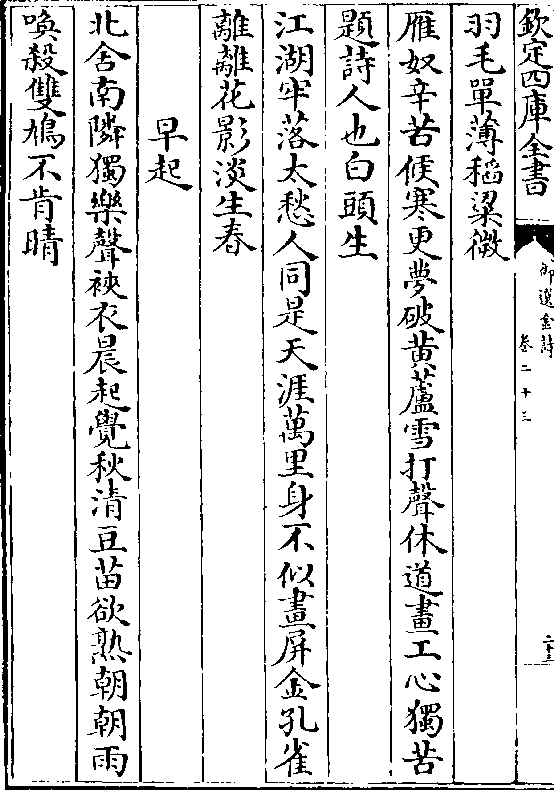 欽定四庫全書
御選金詩
卷二十三
二十三
羽毛單薄稻粱微
雁奴辛苦候寒更夢破黄蘆雪打聲休道畫工心獨苦
題詩人也白頭生
江湖牢落太愁人同是天涯萬里身不似畫屏金孔雀
離離花影淡生春
早起
北舍南隣獨樂聲裌衣晨起覺秋清豆苗欲熟朝朝雨
喚殺雙鳩不肯晴